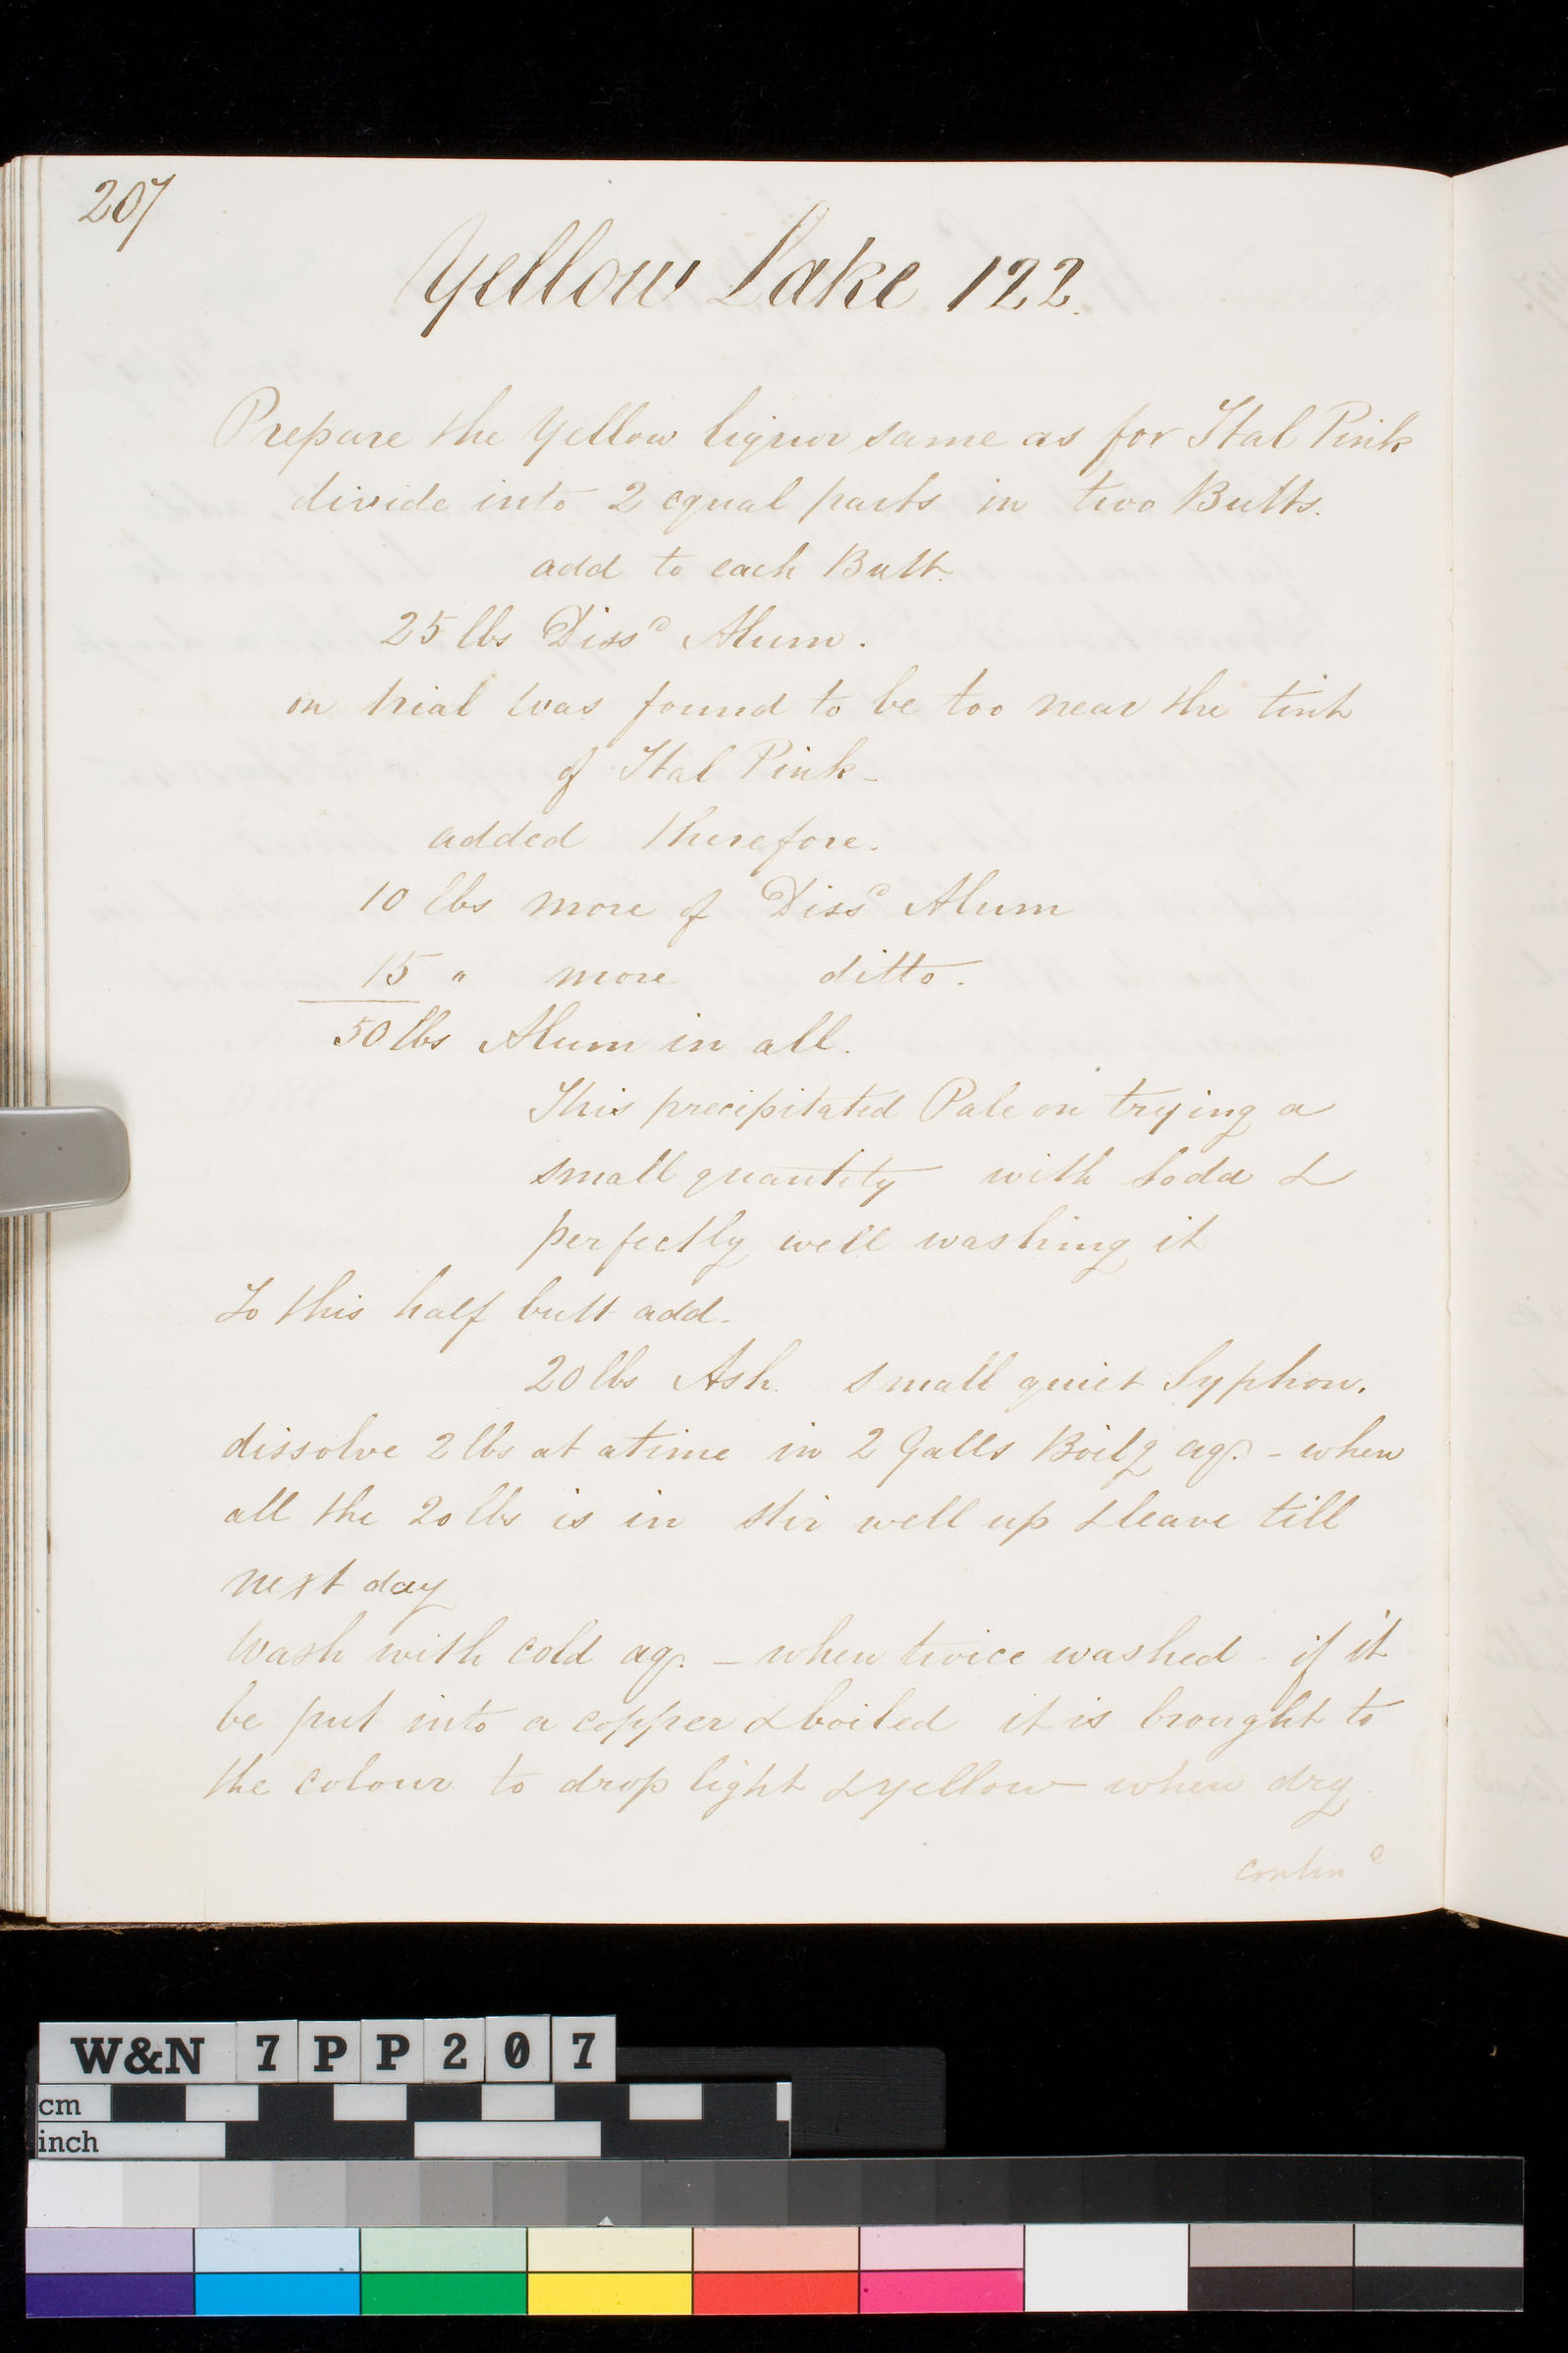 207
Yellow Lake 122.
Prepare the Yellow liquor same as for Ital Pink
divide into 2 equal parts in two Butts.
add to each Butt.
25 lbs Dissd Alum.
on trial was found to be too near the tint
of Ital Pink-
added therefore.
10 lbs more of Dissd Alum
15 " more ditto.
50 lbs Alum in all.
This precipitated Pale on trying a
small quantity with Soda &
perfectly well washing it
To this half butt add.
20 lbs Ash. small quiet Syphon.
dissolve 2 lbs at a time in 2 Galls Boilg aq. - when
all the 20 lbs is in stir well up & leave till
next day
Wash with cold aq. - when twice washed if it
be put into a copper & boiled it is brought to
the colour to drop light & yellow when dry
contind
W&N 7PP207
cm
inch